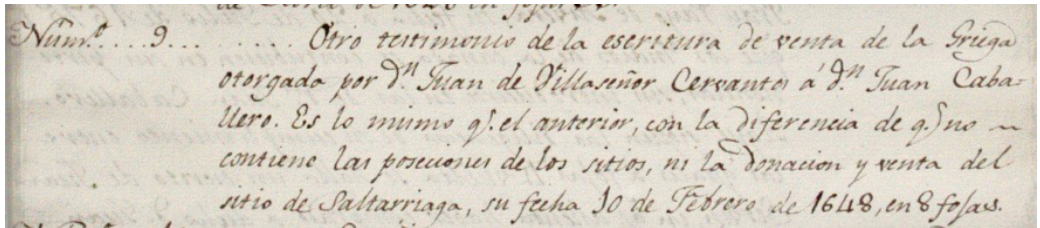 Núm.º....9......... Otro testimonio de la escritura de venta de la Griega
otorgada por dn. Juan de Villaseñor Cervantes á dn. Juan Caba-
llero. Es lo mismo q.e el anterior, con la diferencia de q.e no
contiene las poseciones de los sitios, ni la donacion y venta del
sitio de Saltarriaga, su fecha 10 de Febrero de 1648, en 8 fojas.